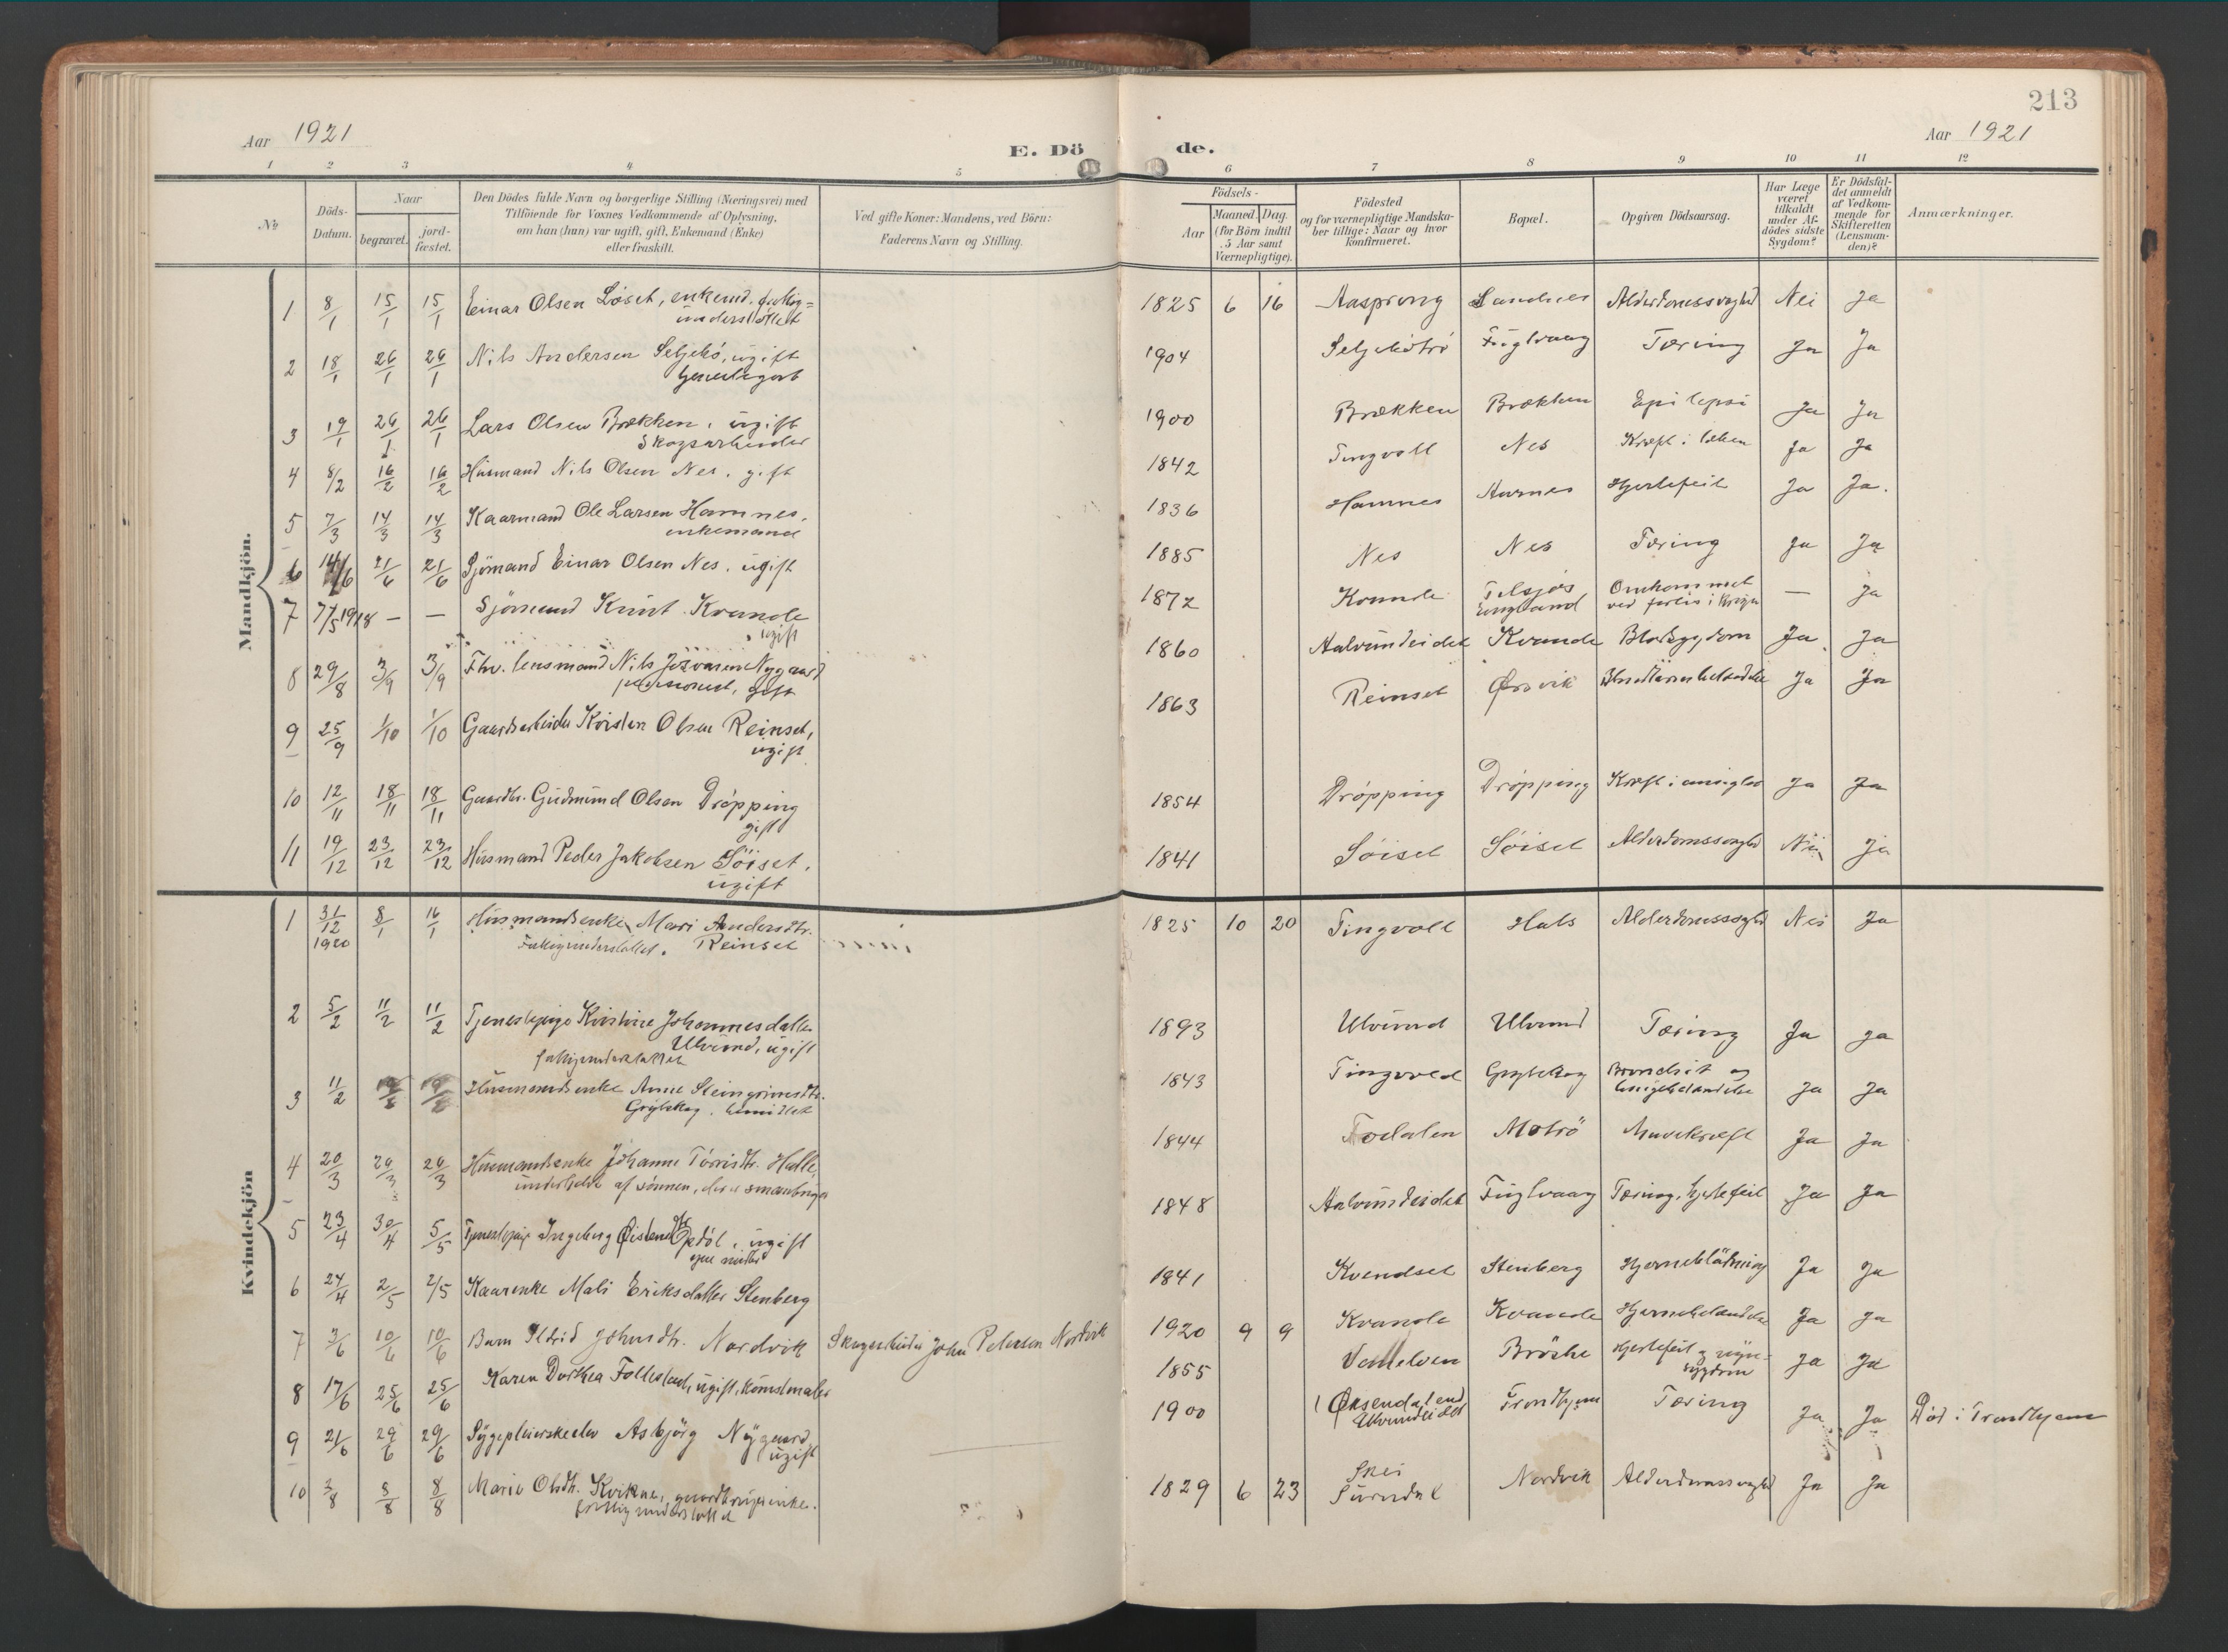 213
Aar 1921
E. Döde.
Aar 1921
1 2 3 4 5 6 7 8 9 10 11 12
No
Döds-Datum.
Naar
begravet.
jord-fæstet.
Den Dödes fulde Navn og borgerlige Stilling (Næringsvei) med
Tilföiende for Voxnes Vedkommende af Oplysning,
om han (hun) var ugift, gift, Enkemand (Enke)
eller fraskilt.
Ved gifte Koner: Mandens, ved Börn:
Faderens Navn og Stilling.
Födsels-
Aar
Maaned. Dag.
(for Börn indtil
5 Aar samt
Værnepligtige).
Födested
og for værnepligtige Mandska-
ber tillige: Naar og hvor
konfirmeret.
Bopæl.
Opgiven Dödsaarsag.
Har Læge
været
tilkaldt
under Af-
dödes sidste
Sygdom?
Er Dödsfal-
det anmeldt
af Vedkom-
mende for
Skifteretten
(Lensman-
den)?
Anmærkninger.
Mandkjön.
1 8/1 15/1 15/1 Einar Olsen Löset, enkemd. fattig=
understöttet 1825 6 16 Aasprong Sandnes Alderdomssvaghed Nei Ja
2 18/1 26/1 26/1 Nils Andersen Seljebö, ugift
1904 Seljebötrö Fuglvaag Tæring Ja Ja
3 19/1 26/1 26/1 Lars Olsen Brækken, ugift
Skogsarbeider 1900 Brækken Brækken Epilepsi Ja Ja
4 8/2 16/2 16/2 Husmand Nils Olsen Nes, gift 1842 Tingvoll Nes Kræft i Ja Ja
5 7/3 14/3 14/3 Kaarmand Ole Larsen Hamnes,
enkemand 1836 Hamnes Aarnes Hjertefeil Ja Ja.
6 14/6 21/6 21/6 Sjömand Einar Olsen Nes, ugift 1885 Nes Nes Tæring Ja Ja
7 7/5 1918 — — Sjömand Knut Kvande
ugift 1872 Kvande England Omkommet
ved forlis i krigen — Ja
8 29/8 3/9 3/9 Fhv. lensmand Nils Nygaard
pensionist, gift 1860 Aalvundeidet Kvande Blodsygdom Ja Ja
9 25/9 1/10 1/10 Gaardsarbeider Kristen Olsen Reinset,
ugift 1863 Reinset Örsvik Blindtarmbetændelse Ja Ja
10 12/11 18/11 18/11 Gaardbr. Gudmund Olsen Dröpping
gift 1854 Dröpping Dröpping Kræft i ansigtet Ja Ja
11 19/12 23/12 23/12 Husmand Peder Jakobsen Söiset,
ugift 1841 Söiset Söiset Alderdomssvaghed Nei Ja
Kvindekjön
1 31/12 1920 8/1 16/1 Husmandsenke Mari Andersdtr.
Fattigunderstöttet. Reinset 1825 10 20 Tingvoll Hals Alderdomssvaghed Nei Ja
2 5/2 11/2 11/2 Tjenestepige Kirstine Johannesdatter
Ulvund, ugift
fattigunderstøttet 1893 Ulvund Ulvund Tæring Ja Ja
3 11/2 Husmandsenke Anne Steingrimsdtr.
1843 Tingvold Bronchit og
lungebetændelse Ja Ja
4 20/3 29/3 29/3 Husmandsenke Johanne Halle,
af sönnen, 1844 Todalen Motrö Mavekræft Ja Ja
5 23/4 30/4 5/5 Tjenestepige Ingeborg Öistensdtr. Opdöl, ugift
egne midler 1848 Aalvundeidet Fuglvaag Tæring, hjertefeil Ja Ja
6 24/4 2/5 2/5 Kaarenke Mali Eriksdatter Stenberg 1841 Kvendset Stenberg Hjerneblödning Ja Ja
7 3/6 10/6 10/6 Barn Ildrid Johnsdtr. Nordvik Skogsarbeider John Petersen Nordvik 1920 9 9 Kvande Kvande Hjernebetændelse Ja Ja
8 17/6 25/6 25/6 Karen Dorthea Follestad, ugift, kunstmaler 1855 Vemelven Bröske Hjertefeil og
sygdom Ja Ja
9 21/6 29/6 29/6 Sygepleierskeelev Asbjörg Nygaard
ugift 1900 Öksendalen
Aalvundeidet Trondhjem Tæring Ja Ja Död i Trondhjem
10 3/8 8/8 8/8 Marie Olsdtr. Kvikne, gaardbrugerenke.
fattigunderstöttet 1829 6 23 Skei
Surndal Nordvik Alderdomssvaghed Ja Ja